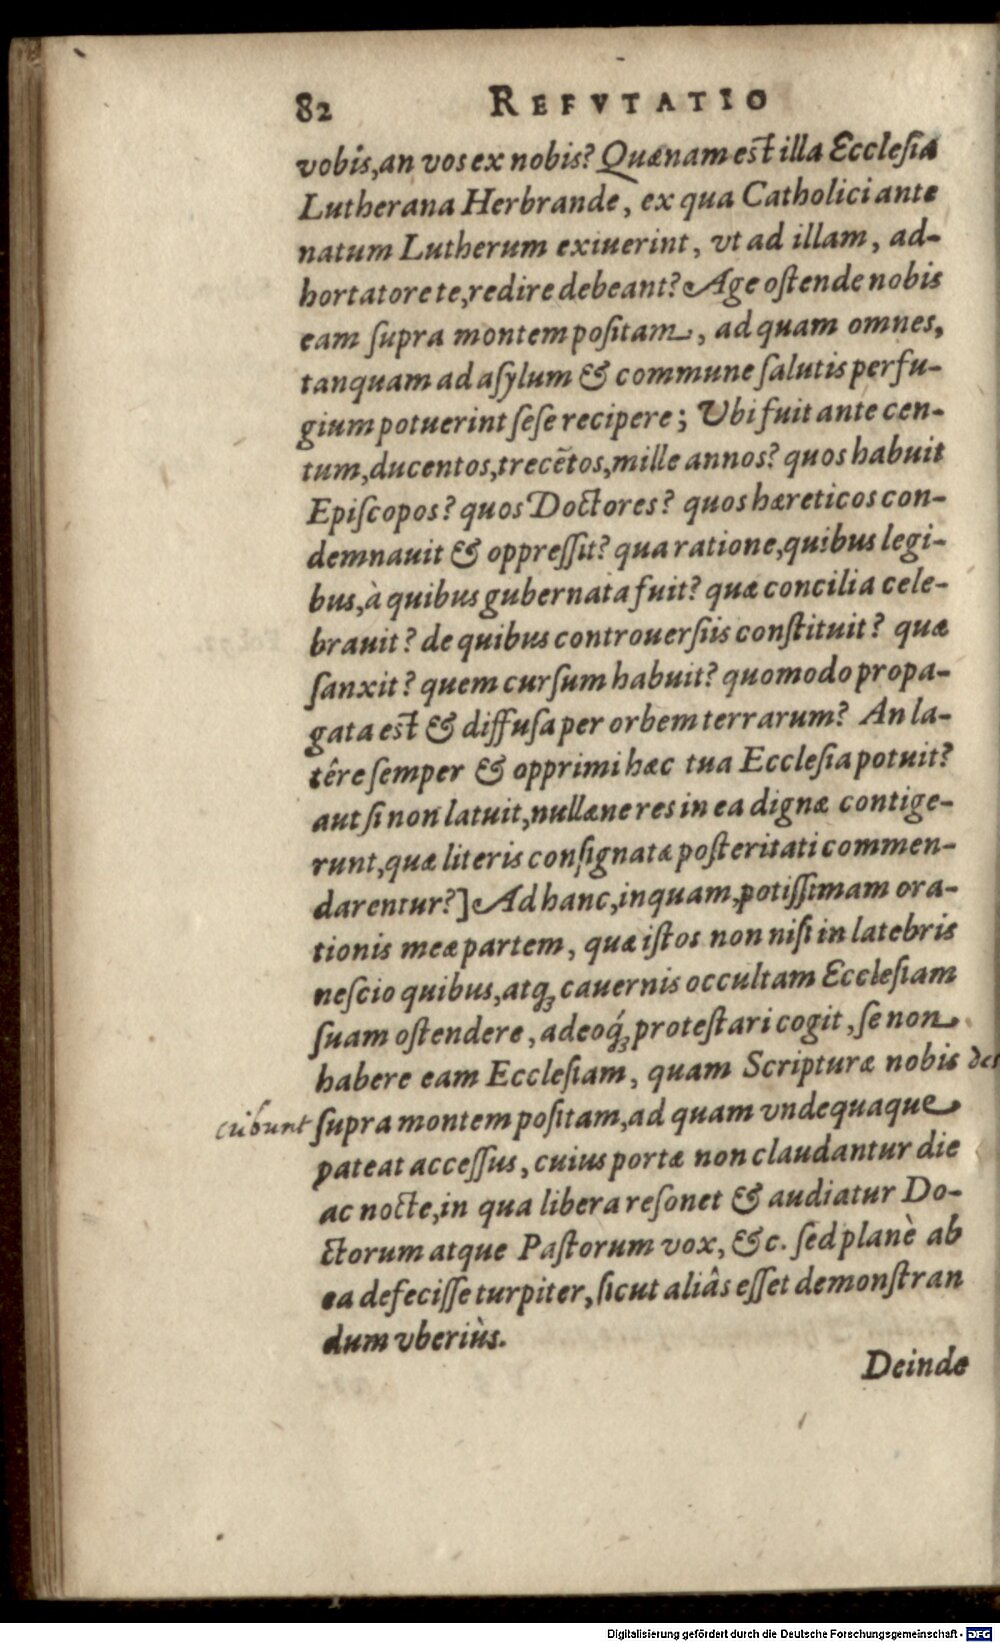 82 REFVTATIO
vobis, an vos ex nobis? Quænam est illa Ecclesia
Lutherana Herbrande, ex qua Catholici ante
natum Lutherum exiuerint, vt ad illam, ad-
hortatore te, redire debeant? Age ostende nobis
eam supra montem positam, ad quam omnes,
tanquam ad asylum & commune salutis perfu-
gium potuerint sese recipere; Vbi fuit ante cen-
tum, ducentos, trecẽtos, mille annos? quos habuit
Episcopos? quos Doctores? quos hæreticos con-
demnauit & oppressit? qua ratione, quibus legi-
bus, à quibus gubernata fuit? quæ concilia cele-
brauit? de quibus controuersiis constituit? quæ
sanxit? quem cursum habuit? quomodo propa-
gata est & diffusa per orbem terrarum? An la-
têre semper & opprimi hæc tua Ecclesia potuit?
aut si non latuit, nullæne res in ea dignæ contige-
runt, quæ literis consignatæ posteritati commen-
darentur?] Ad hanc, inquam, potissimam ora-
tionis meæ partem, quæ istos non nisi in latebris
nescio quibus, atq; cauernis occultam Ecclesiam
suam ostendere, adeoq́; protestari cogit, se non
habere eam Ecclesiam, quam Scripturæ nobis des
cribunt supra montem positam, ad quam vndequaque
pateat accessus, cuius portæ non claudantur die
ac nocte, in qua libera resonet & audiatur Do-
ctorum atque Pastorum vox, &c. sed planè ab
ea defecisse turpiter, sicut aliâs esset demonstran
dum vberiùs.
Deinde
Digitalisierung gefördert durch die Deutsche Forschungsgemeinschaft - DFG